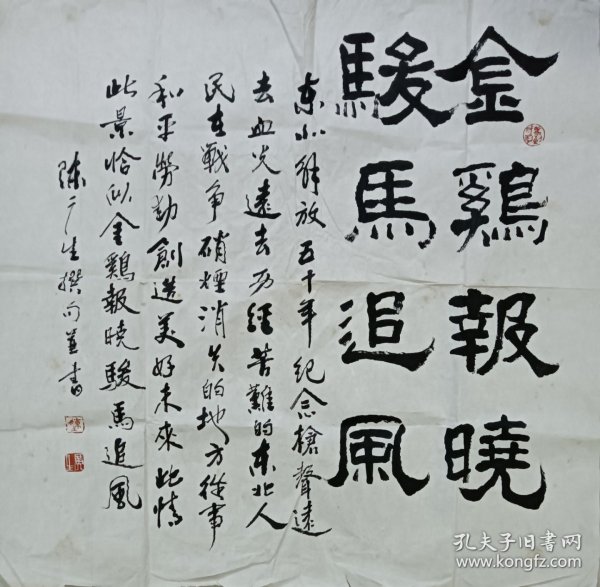 金鷄報曉
駿馬追風
东北解放五十年纪念槍聲遠
去血光遠去历經苦難的东北人
民在戰争硝煙消失的地方從事
和平勞動創造美好未來此情
此景恰似金鷄報曉駿馬追風
陈广生撰句並書
孔夫子旧书网
www.kongfz.com